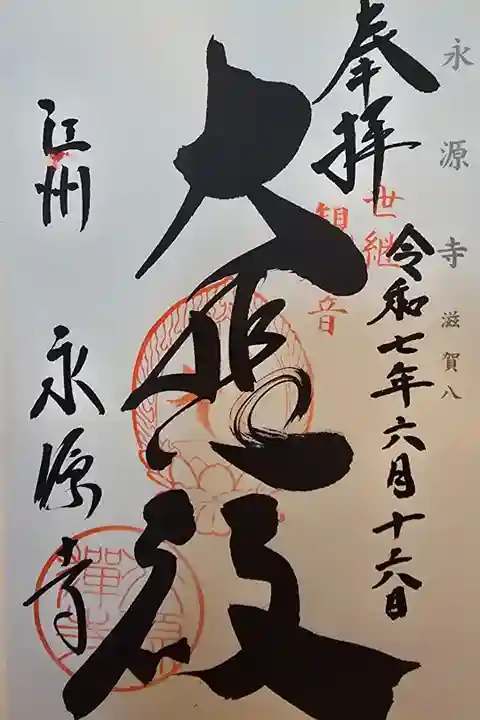 永源寺 滋賀八
奉拝
世継
観音
令和七年六月十六日
大悲殿
江州 永源寺